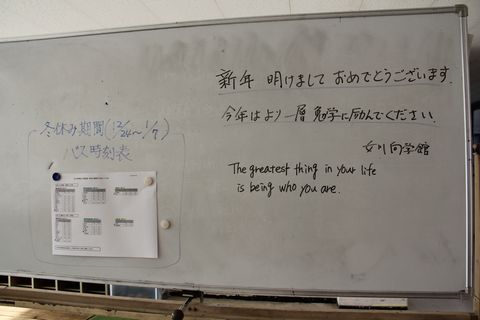 冬休み期間(12/24〜1/7)
バス時刻表
新年 明けまして おめでとうございます.
今年はより一層勉学に励んでください.
女川向学館
The greatest thing in your life
is being who you are.